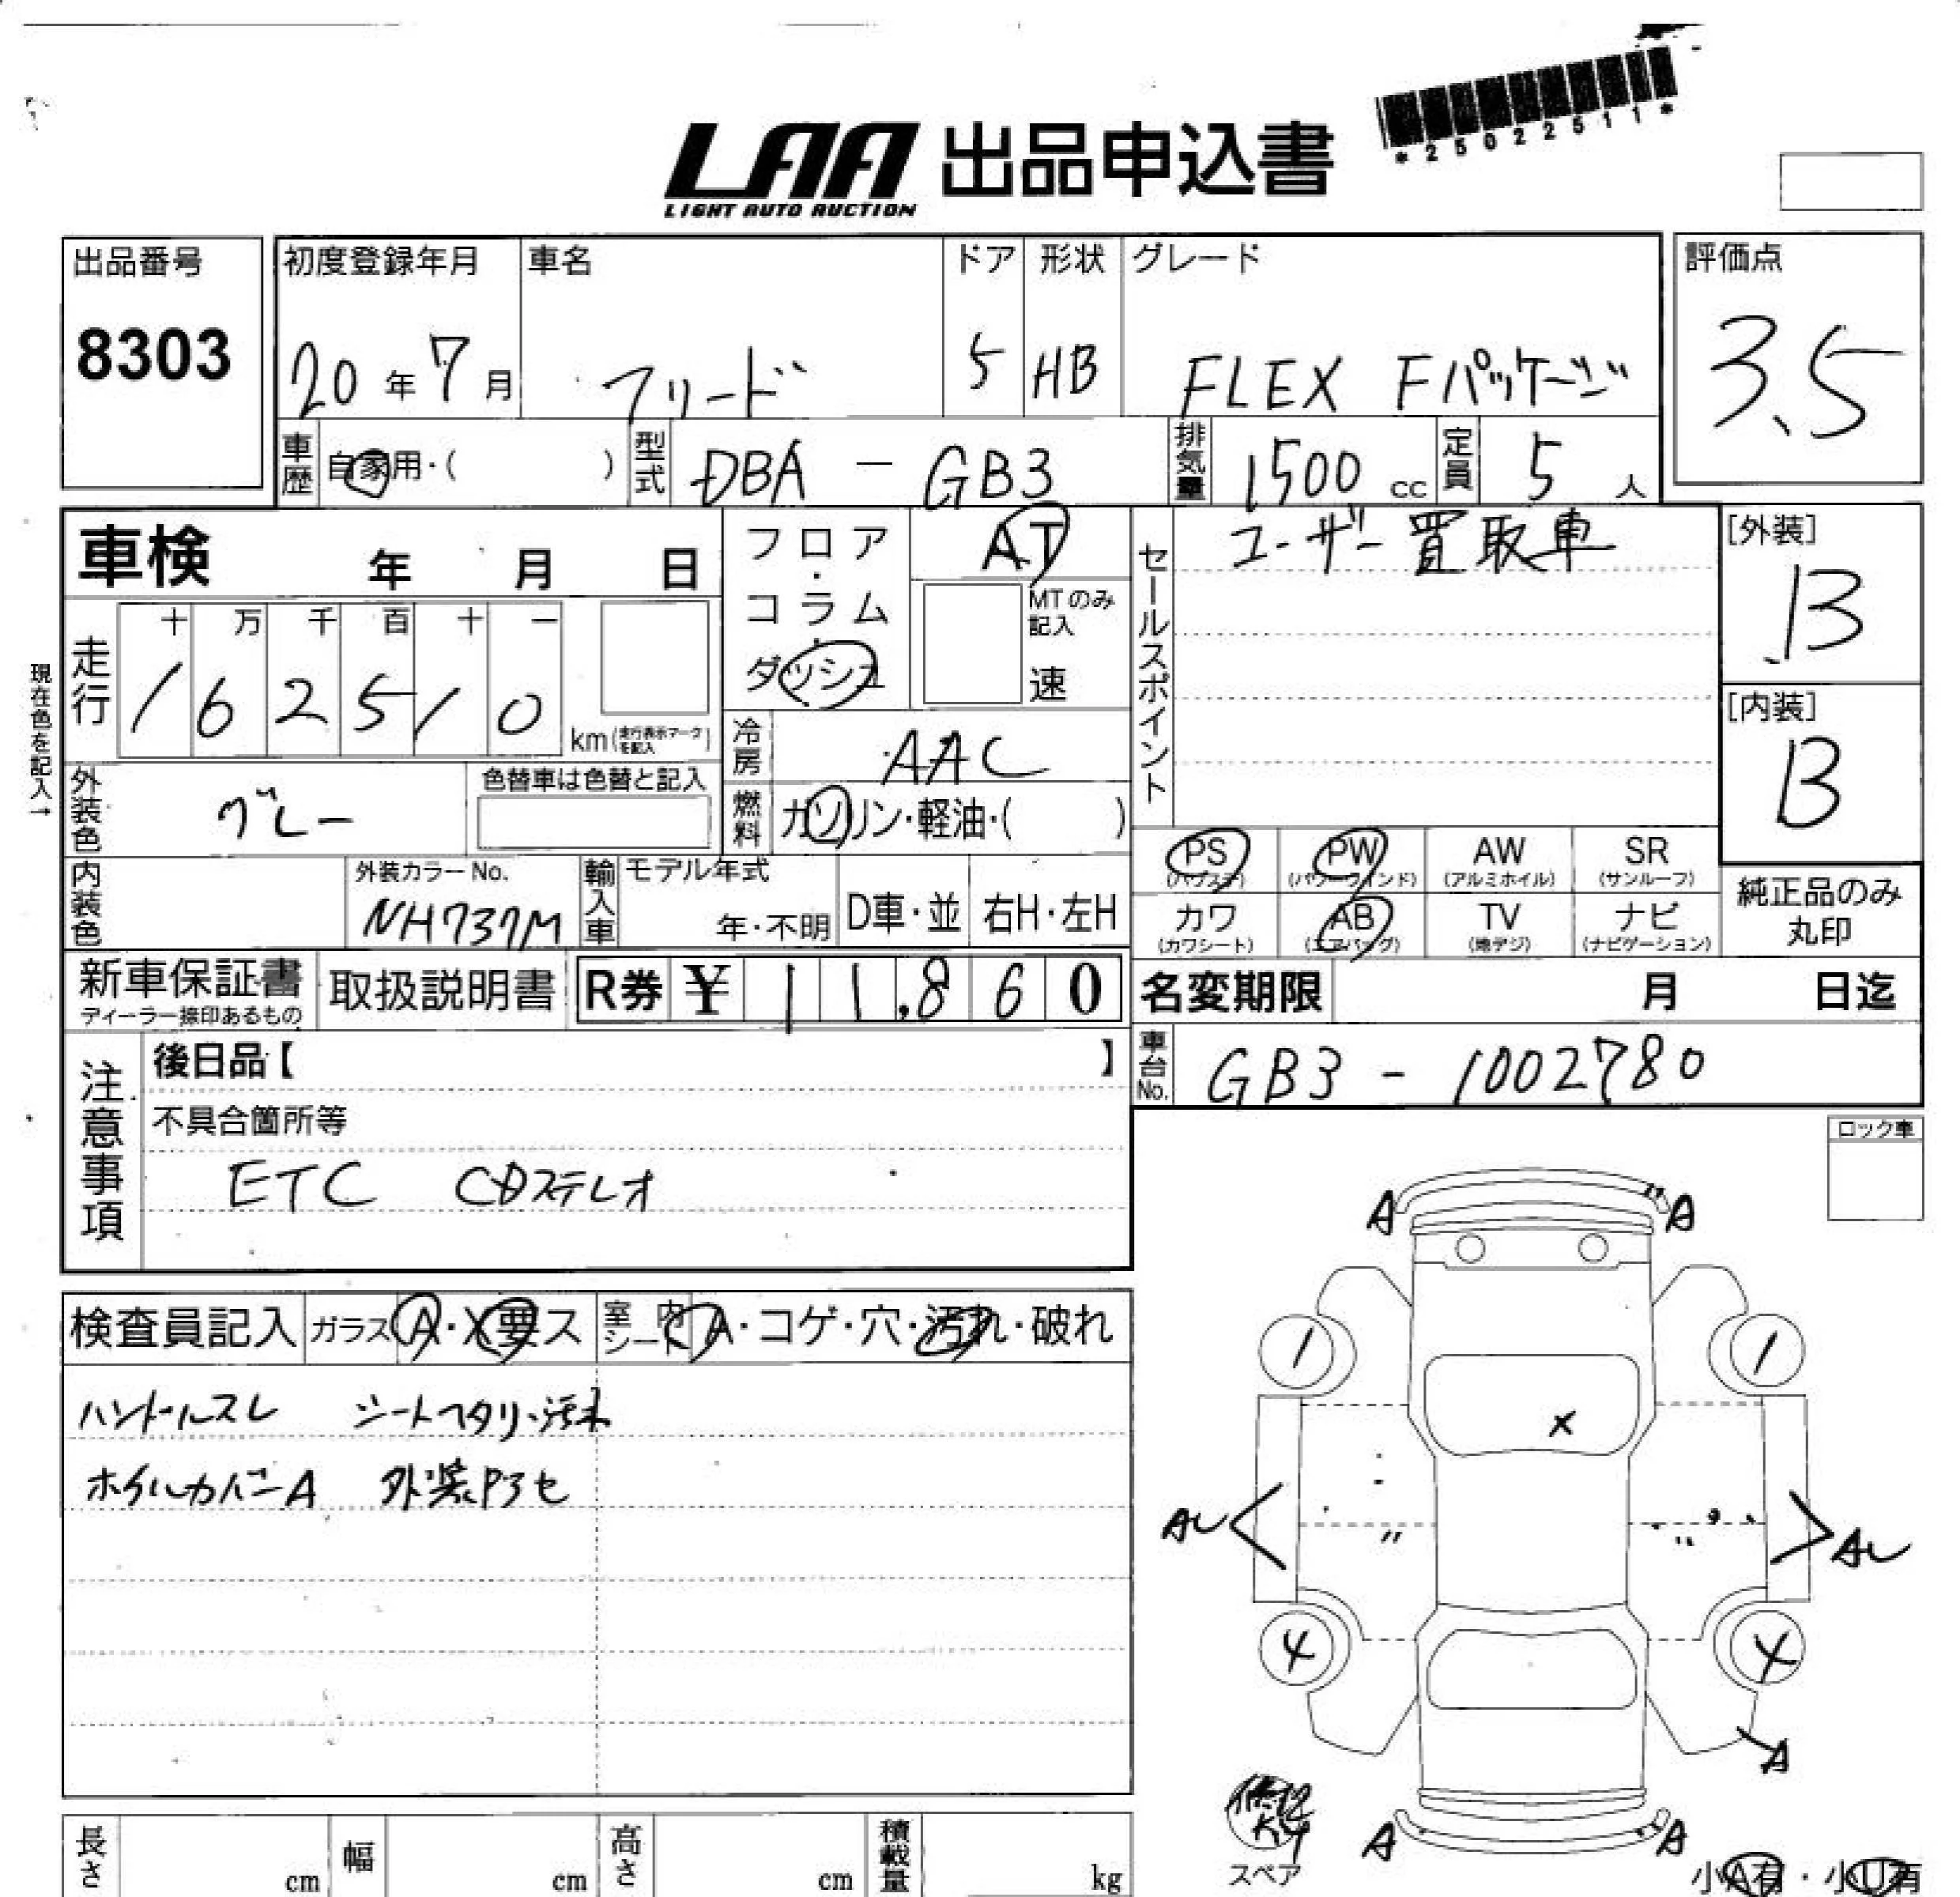 *25022511*
LAA 出品申込書
LIGHT AUTO AUCTION
出品番号
8303
初度登録年月
20年7月
車名
フリード
ドア
5
形状
HB
グレード
FLEX Fパッケージ
評価点
3.5
車歴 自家用・( )
型式 DBA - GB3
排気量 1500 cc
定員 5 人
車検 年 月 日
フロア・コラム・ダッシュ
AT
MTのみ記入
速
セールスポイント
ユーザー買取車
[外装]
B
[内装]
B
現在色を記入→
走行
十 万 千 百 十 一
1 6 2 5 1 0
km(走行表示マークを記入)
冷房 AAC
燃料 ガソリン・軽油・( )
外装色 グレー
色替車は色替と記入
内装色
外装カラーNo.
NH737M
輸入車
モデル年式
年・不明
D車・並
右H・左H
PS (パワステ)
PW (パワーウインド)
AW (アルミホイル)
SR (サンルーフ)
カワ (カワシート)
AB (エアバッグ)
TV (地デジ)
ナビ (ナビゲーション)
純正品のみ丸印
新車保証書
ディーラー捺印あるもの
取扱説明書
R券 ¥ 1 1,8 6 0
名変期限 月 日迄
車台No. GB3 - 1002780
注意事項
後日品【 】
不具合箇所等
ETC CDステレオ
ロック車
検査員記入
ガラス A・X要ス
室内シート A・コゲ・穴・汚れ・破れ
ハンドルスレ シートヘタリ・汚れ
ホイルカバーA 外装P3セ
A A
1 1
X
AU AU
4 4
A
A A
修理キット
スペア
小A有・小U有
長さ cm
幅 cm
高さ cm
積載量 kg